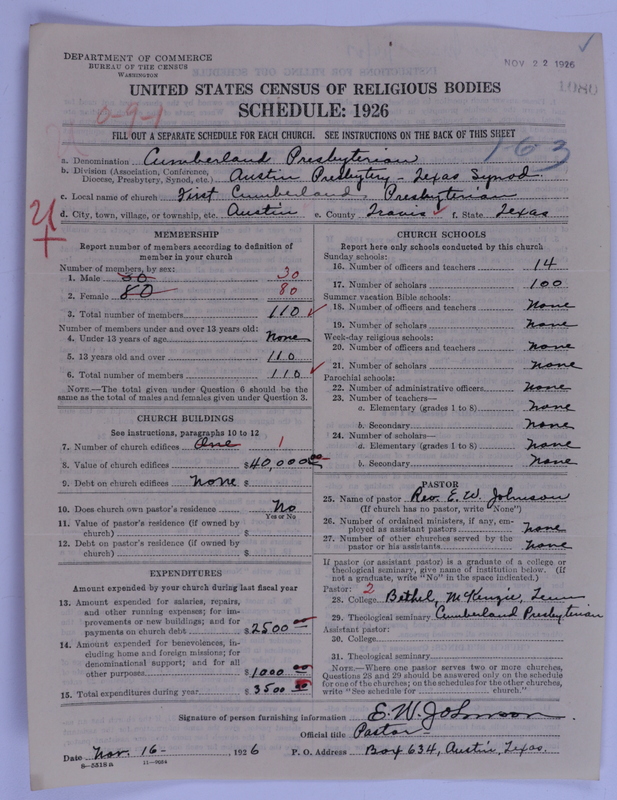 DEPARTMENT OF COMMERCE
BUREAU OF THE CENSUS
WASHINGTON
NOV 22 1926
1080
UNITED STATES CENSUS OF RELIGIOUS BODIES
SCHEDULE: 1926
0-9-1
FILL OUT A SEPARATE SCHEDULE FOR EACH CHURCH. SEE INSTRUCTIONS ON THE BACK OF THIS SHEET
163
a. Denomination Cumberland Presbyterian
b. Division (Association, Conference, Diocese, Presbytery, Synod, etc.) Austin Presbytery - Texas Synod
c. Local name of church First Cumberland Presbyterian
d. City, town, village, or township, etc. Austin e. County Travis f. State Texas
MEMBERSHIP
Report number of members according to definition of
member in your church
Number of members, by sex:
1. Male 30 30
2. Female 80 80
3. Total number of members 110
Number of members under and over 13 years old:
4. Under 13 years of age None
5. 13 years old and over 110
6. Total number of members 110
NOTE.—The total given under Question 6 should be the
same as the total of males and females given under Question 3.
CHURCH BUILDINGS
See instructions, paragraphs 10 to 12
7. Number of church edifices One 1
8. Value of church edifices $40,000.00
9. Debt on church edifices None $
10. Does church own pastor's residence No
Yes or No
11. Value of pastor's residence (if owned by
church) $
12. Debt on pastor's residence (if owned by
church) $
EXPENDITURES
Amount expended by your church during last fiscal year
13. Amount expended for salaries, repairs,
and other running expenses; for im-
provements or new buildings; and for
payments on church debt $2500 00
14. Amount expended for benevolences, in-
cluding home and foreign missions; for
denominational support; and for all
other purposes $1000 00
15. Total expenditures during year $3500 00
CHURCH SCHOOLS
Report here only schools conducted by this church
Sunday schools:
16. Number of officers and teachers 14
17. Number of scholars 100
Summer vacation Bible schools:
18. Number of officers and teachers None
19. Number of scholars None
Week-day religious schools:
20. Number of officers and teachers None
21. Number of scholars None
Parochial schools:
22. Number of administrative officers None
23. Number of teachers—
a. Elementary (grades 1 to 8) None
b. Secondary None
24. Number of scholars—
a. Elementary (grades 1 to 8) None
b. Secondary None
PASTOR
25. Name of pastor Rev. E. W. Johnson
(If church has no pastor, write "None")
26. Number of ordained ministers, if any, em-
ployed as assistant pastors None
27. Number of other churches served by the
pastor or his assistants None
If pastor (or assistant pastor) is a graduate of a college or
theological seminary, give name of institution below. (If
not a graduate, write "No" in the space indicated.)
Pastor: 2
28. College Bethel, McKenzie, Tenn
29. Theological seminary Cumberland Presbyterian
Assistant pastor:
30. College
31. Theological seminary
NOTE.—Where one pastor serves two or more churches,
Questions 28 and 29 should be answered only on the schedule
for one of the churches; on the schedules for the other churches,
write "See schedule for church."
Signature of person furnishing information E. W. Johnson
Official title Pastor
Date Nov. 16 - 1926 P. O. Address Box 634, Austin, Texas.
8—5518 a 11—9054